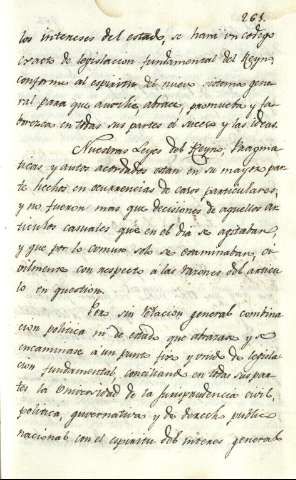 261.
los intereses del estado, se hará un codigo
exacto de legislacion fundamental del Reyno,
conforme al espiritu del nuevo sistema gene
ral para que auxilie, abrace, promueba y fa
borezca en todas sus partes el suceso y las ideas.
Nuestras Leyes del Reyno, Pragma
ticas, y autos acordados estan en su mayor par
te hechos en ocurrencias de casos particulares,
y no fueron mas que decisiones de aquellos ar
ticulos casuales que en el dia se agitaban,
y que por lo comun solo se examinaban, ci
vilmente con respecto á las razones del articu
lo en question.
Pero sin relacion general combina
cion politica ni de estado que abrazase y se
encaminase a un punto fixo y unido de legisla
cion fundamental, conciliando en todas sus par
tes la Universidad de la jurisprudencia civil,
politica, guvernativa y de derecho publico
nacional con el espiritu del interes general